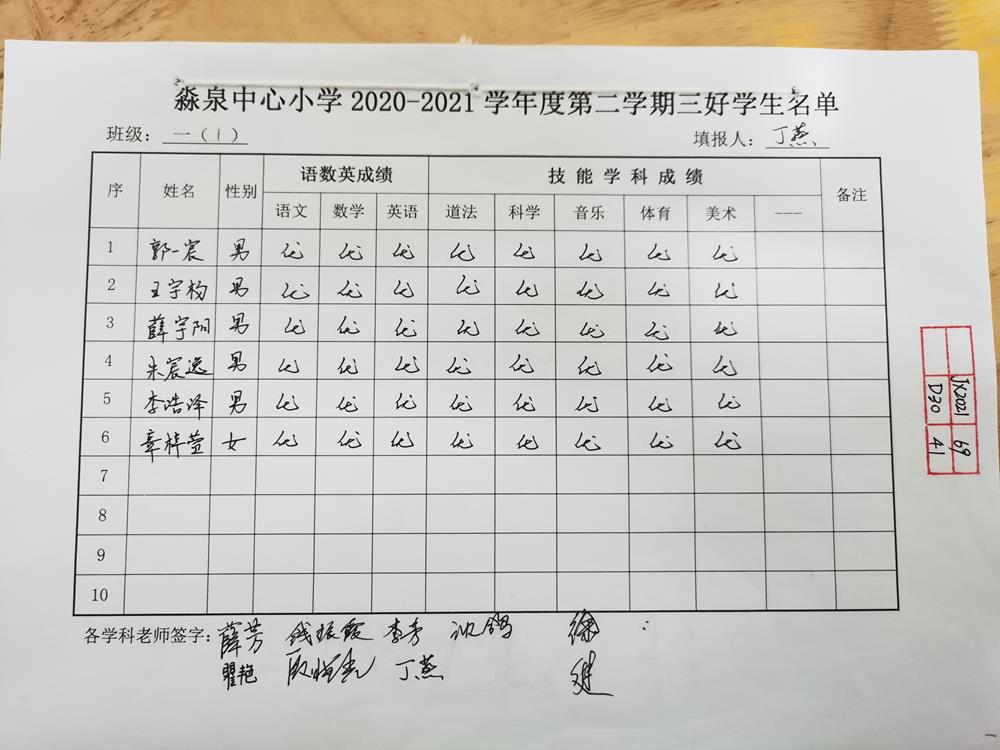 淼泉中心小学 2020-2021 学年度第二学期三好学生名单
班级：一（1） 填报人：丁燕
语数英成绩 技能学科成绩
序 姓名 性别 备注
语文 数学 英语 道法 科学 音乐 体育 美术 ---
1 郭一宸 男 优 优 优 优 优 优 优 优
2 王宇 男 优 优 优 优 优 优 优 优
3 薛宇阳 男 优 优 优 优 优 优 优 优
4 朱宸逸 男 优 优 优 优 优 优 优 优
5 李浩泽 男 优 优 优 优 优 优 优 优
6 章梓萱 女 优 优 优 优 优 优 优 优
7
8
9
10
各学科老师签字：薛芳 钱振霞 李芳
瞿艳 丁燕
JX2021 69
D30 41